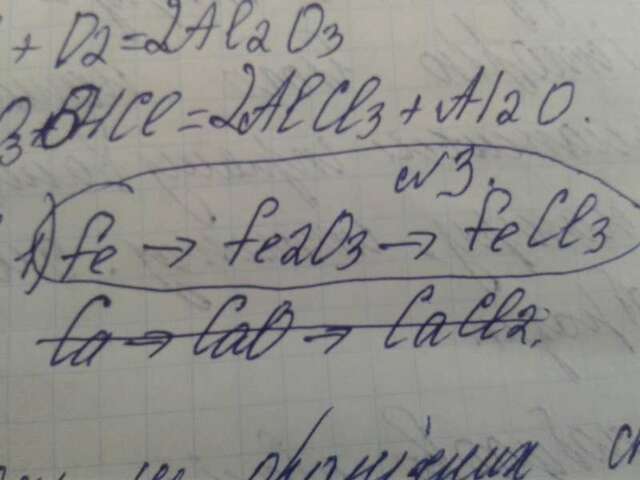 + O2=2Al2O3
O3+6HCl=2AlCl3+Al2O.
№3.
1) Fe → Fe2O3 → FeCl3
Ca → CaO → CaCl2.